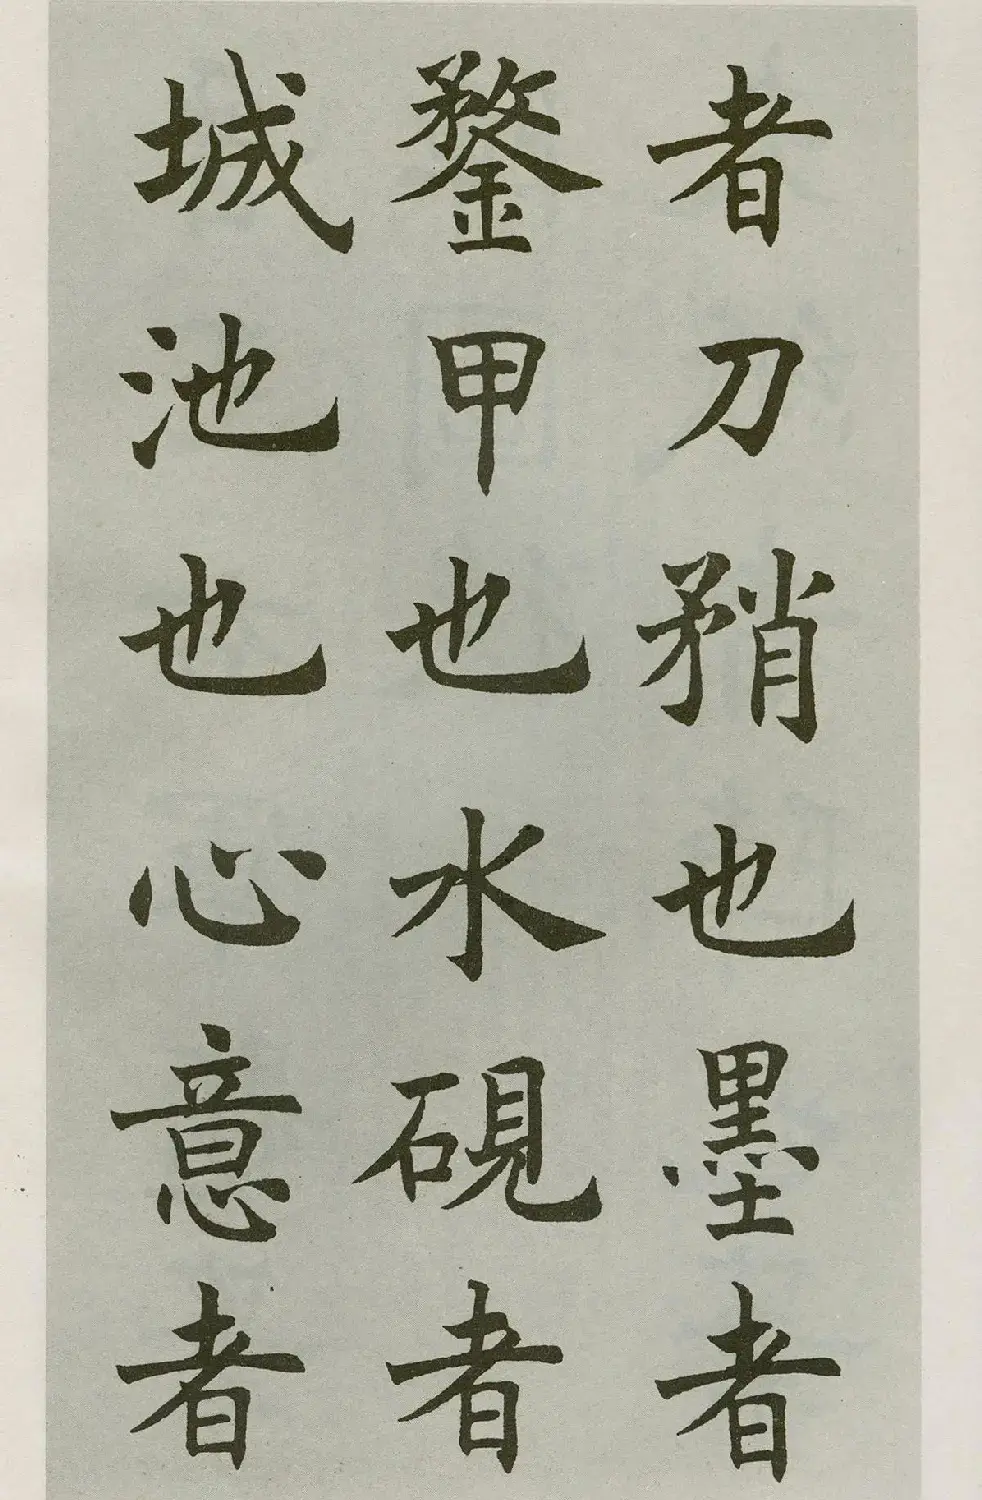 者刀矟也墨者
鍪甲也水硯者
城池也心意者